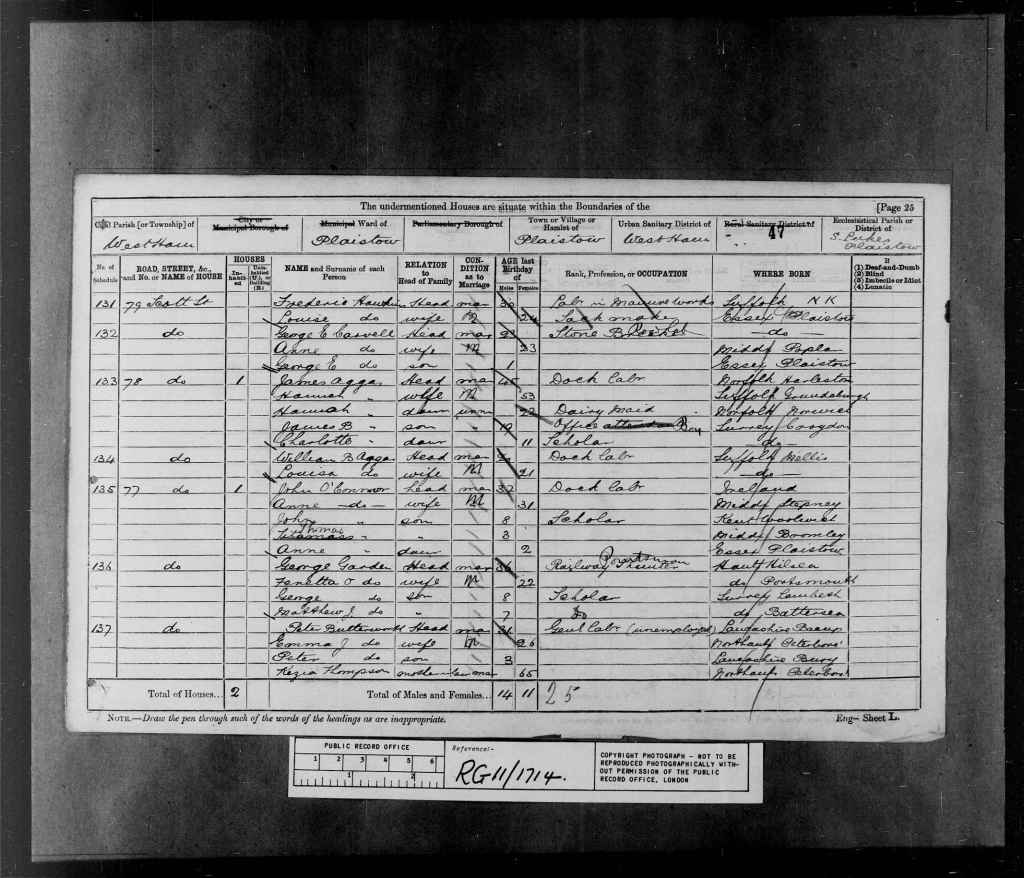 The undermentioned Houses are situate within the Boundaries of the [Page 25
Civil Parish [or Township] of City or Municipal Borough of Municipal Ward of Parliamentary Borough of Town or Village or Hamlet of Urban Sanitary District of Rural Sanitary District of Ecclesiastical Parish or District of
West Ham Plaistow Plaistow West Ham 47 Plaistow
No. of Schedule ROAD, STREET, &c., and No. or NAME of HOUSE HOUSES Inhabited Uninhabited (U.), or Building (B.) NAME and Surname of each Person RELATION to Head of Family CONDITION as to Marriage AGE last Birthday of Males Females Rank, Profession, or OCCUPATION WHERE BORN If (1) Deaf-and-Dumb (2) Blind (3) Imbecile or Idiot (4) Lunatic
131 79 Scott St Frederic Head mar 30 Labr in Manure works Suffolk N K
Louise do wife M 24 Sack maker Essex Plaistow
132 do George E Carvell Head mar 23 Stone — do —
Anne do wife M 23 Middx Poplar
George E do son 1 Essex Plaistow
133 78 do 1 James Aggas Head mar 45 Dock labr Norfolk Harleston
Hannah " wife M 53 Suffolk Grundisburgh
Hannah " daur unm 22 Dairy Maid Norfolk Norwich
James B " son 19 Office Boy Surrey Croydon
Charlotte " daur 11 Scholar — do —
134 do William B Aggas Head mar Dock labr Suffolk Mellis
Louisa do wife M 21 — do —
135 77 do 1 John O'Connor head mar 32 Dock labr Ireland
Anne — do — wife M 31 Middx Stepney
John " son 8 Scholar Kent Woolwich
Thomas " " 3 Middx Bromley
Anne " daur 2 Essex Plaistow
136 do George Garden Head mar 36 Railway Hants Hilsea
Fenetta O do wife M 22 do Portsmouth
George do son 8 Scholar Surrey Lambeth
Matthew J do " 7 Do do Battersea
137 do Peter Butterworth Head mar 31 Genl labr (unemployed) Lancashire Bacup
Emma J do wife M 26 Northants Peterboro'
Peter do son 3 Lancashire Bury
Kezia Thompson mother in law mar 65 Northants Peterboro'
Total of Houses... 2 Total of Males and Females... 14 11 25
NOTE.—Draw the pen through such of the words of the headings as are inappropriate. Eng— Sheet L.
PUBLIC RECORD OFFICE
1 2 3 4 5 6
1 2
Reference:-
RG 11/1714.
COPYRIGHT PHOTOGRAPH - NOT TO BE
REPRODUCED PHOTOGRAPHICALLY WITH-
OUT PERMISSION OF THE PUBLIC
RECORD OFFICE, LONDON